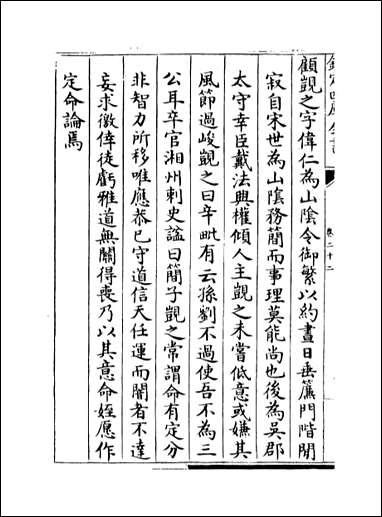 欽定四庫全書
卷二十二
顧覬之字偉仁為山隂令御繁以約晝日垂簾門階閒
寂自宋世為山隂務簡而事理莫能尚也後為吳郡
太守幸臣戴法興權傾人主覬之未嘗低意或嫌其
風節過峻覬之曰辛毗有云孫劉不過使吾不為三
公耳卒官湘州刺史諡曰簡子覬之常謂命有定分
非智力所移唯應恭已守道信天任運而闇者不達
妄求徼倖徒虧雅道無關得喪乃以其意命姪愿作
定命論焉